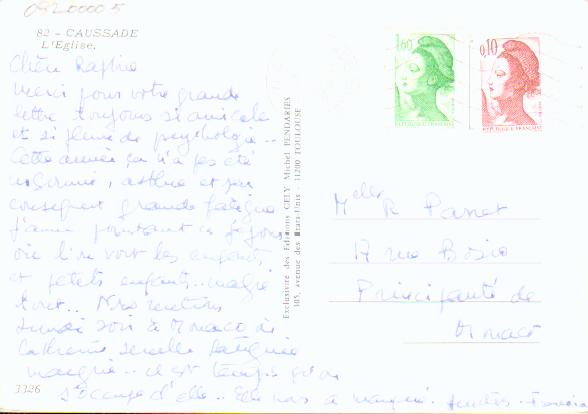 0920000 5
82 - CAUSSADE
L'Eglise.
Merci pour votre grande
lettre toujours si amicale
et si pleine de psychologie..
Cette année ça n'a pas été
asthme et par
conséquent grande fatigue
J'aime pourtant ce séjour
où l'on voit les enfants
et petits enfants.. malgré
tout.. Nous rentrons
à Monaco
Catherine semble fatiguée
.. il est temps
s'occupe d'elle.. Elle nous a manqué.
3326
Exclusivité des Editions CELY Michel PENDARIES
105, avenue des Etats-Unis - 31200 TOULOUSE
1,60
REPUBLIQUE FRANCAISE
0,10
REPUBLIQUE FRANCAISE
Melle R
17 rue Bosio
Principauté de
Monaco